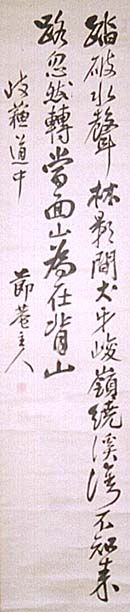 踏破水聲林影間犬牙峻嶺繞溪湾不知来
路忽然轉當面山為在背山
岐蘓道中
節菴主人